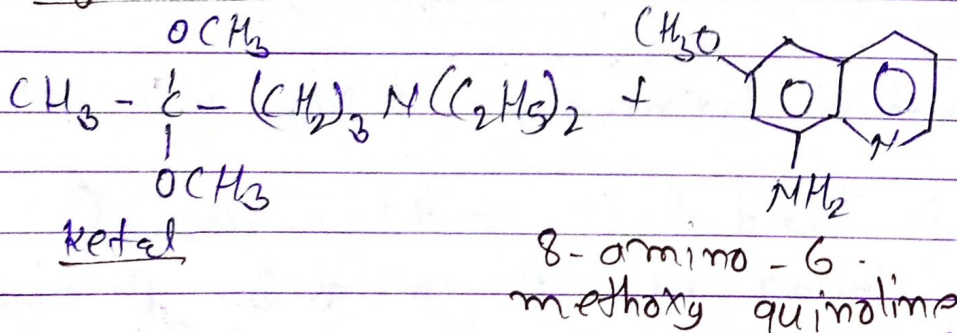 OCH3 CH3O
CH3 - C - (CH2)3 N(C2H5)2 +
N
OCH3 NH2
Ketal 8-amino-6-
methoxy quinoline